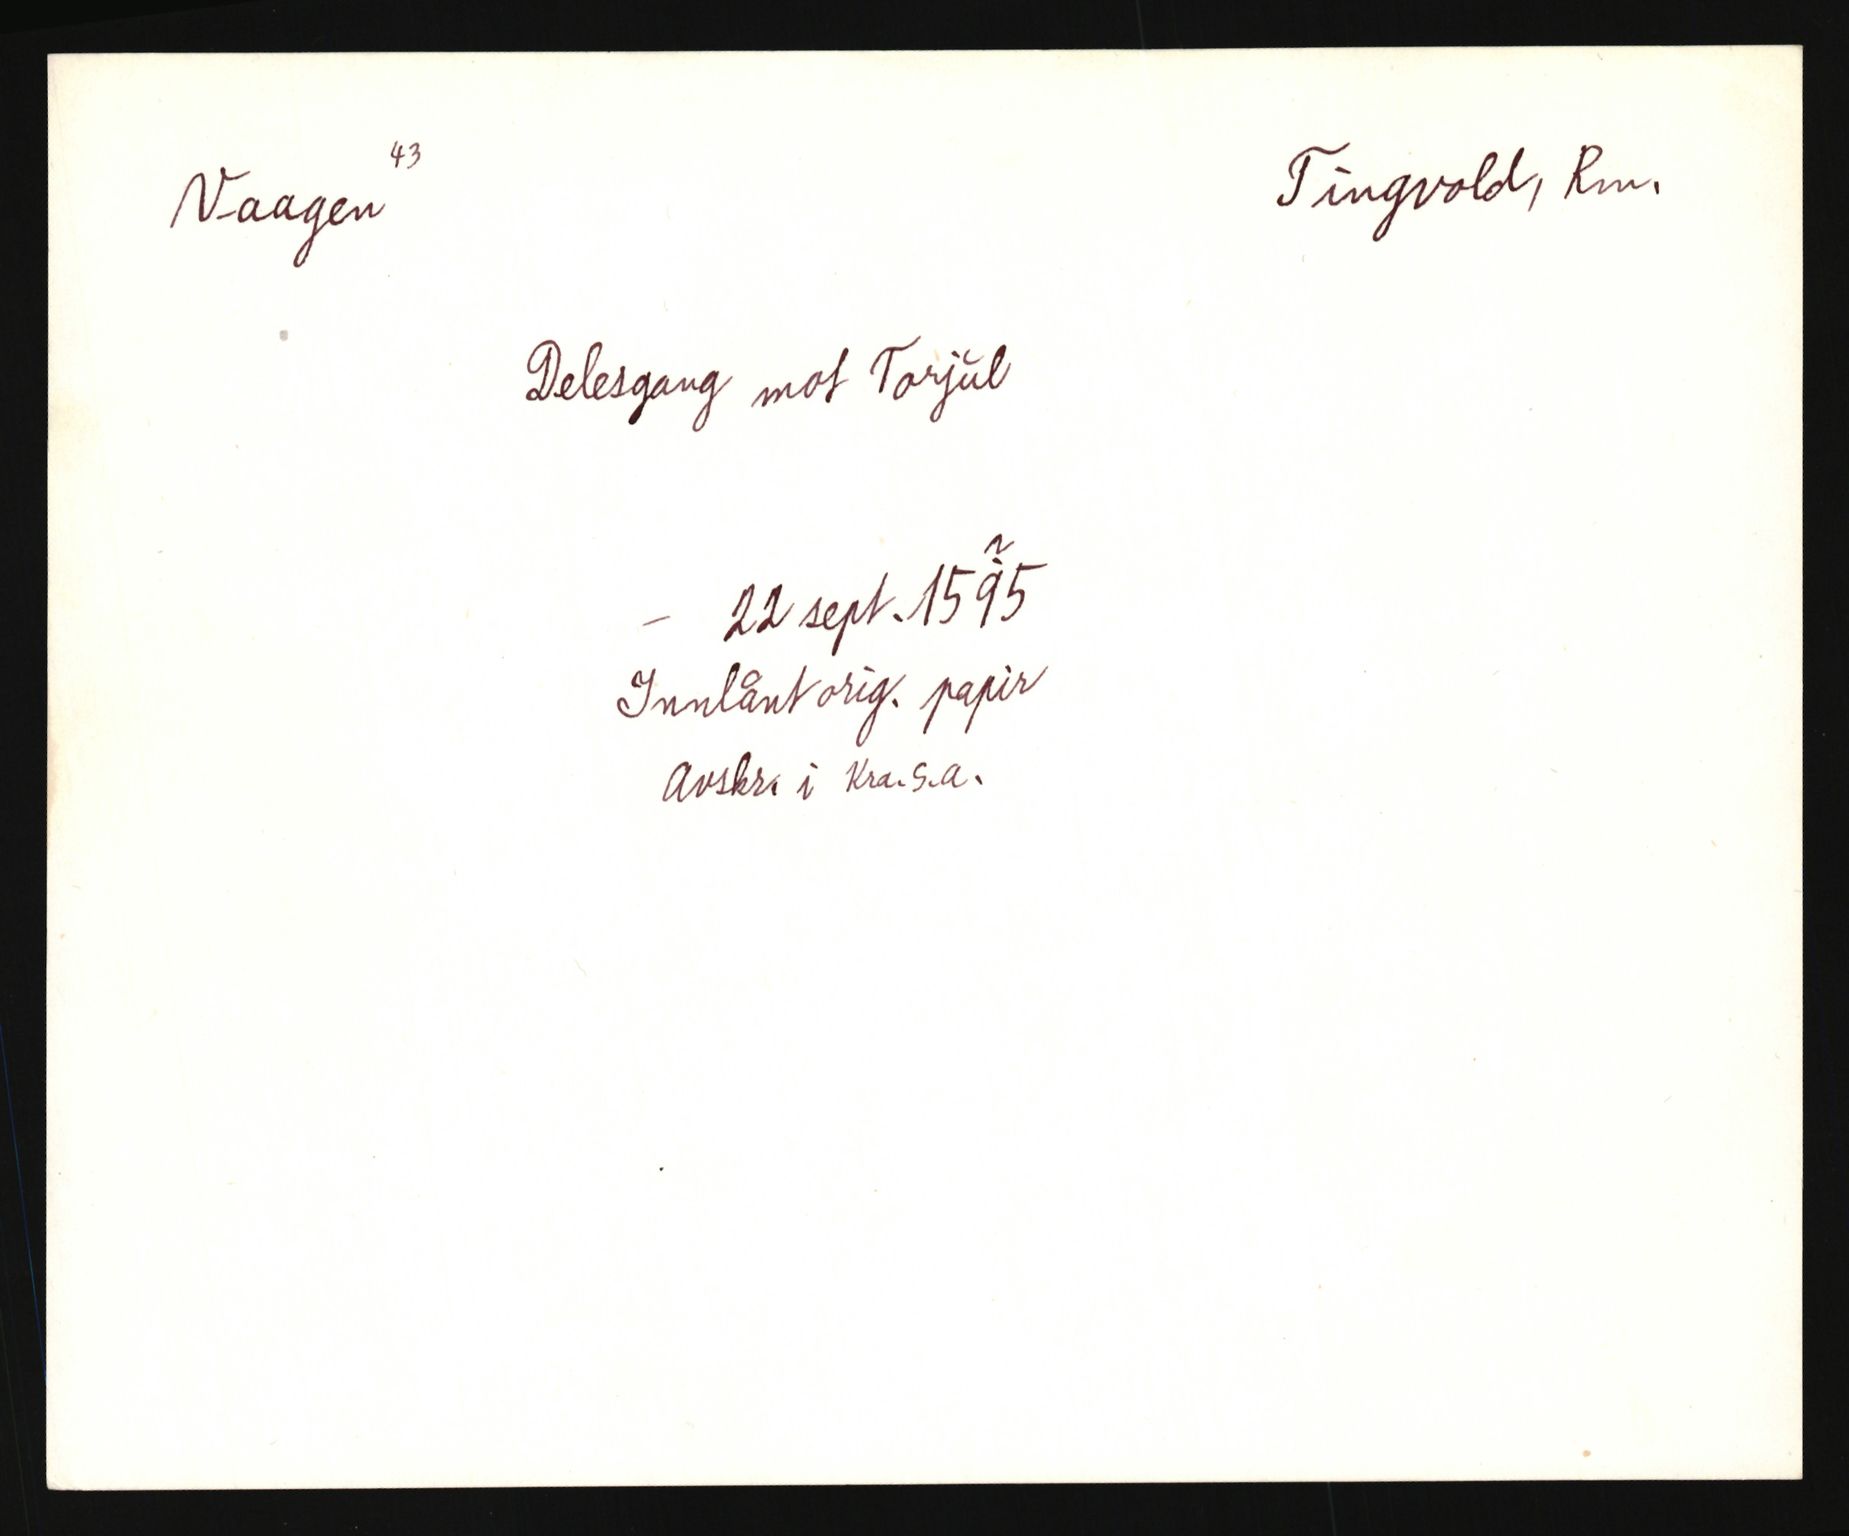 Vaagen 43
Tingvold, Rm.
Delesgang mot Torjŭl
- 22 sept. 1595
Innlånt orig. papir
Avskr. i Kra.S.A.